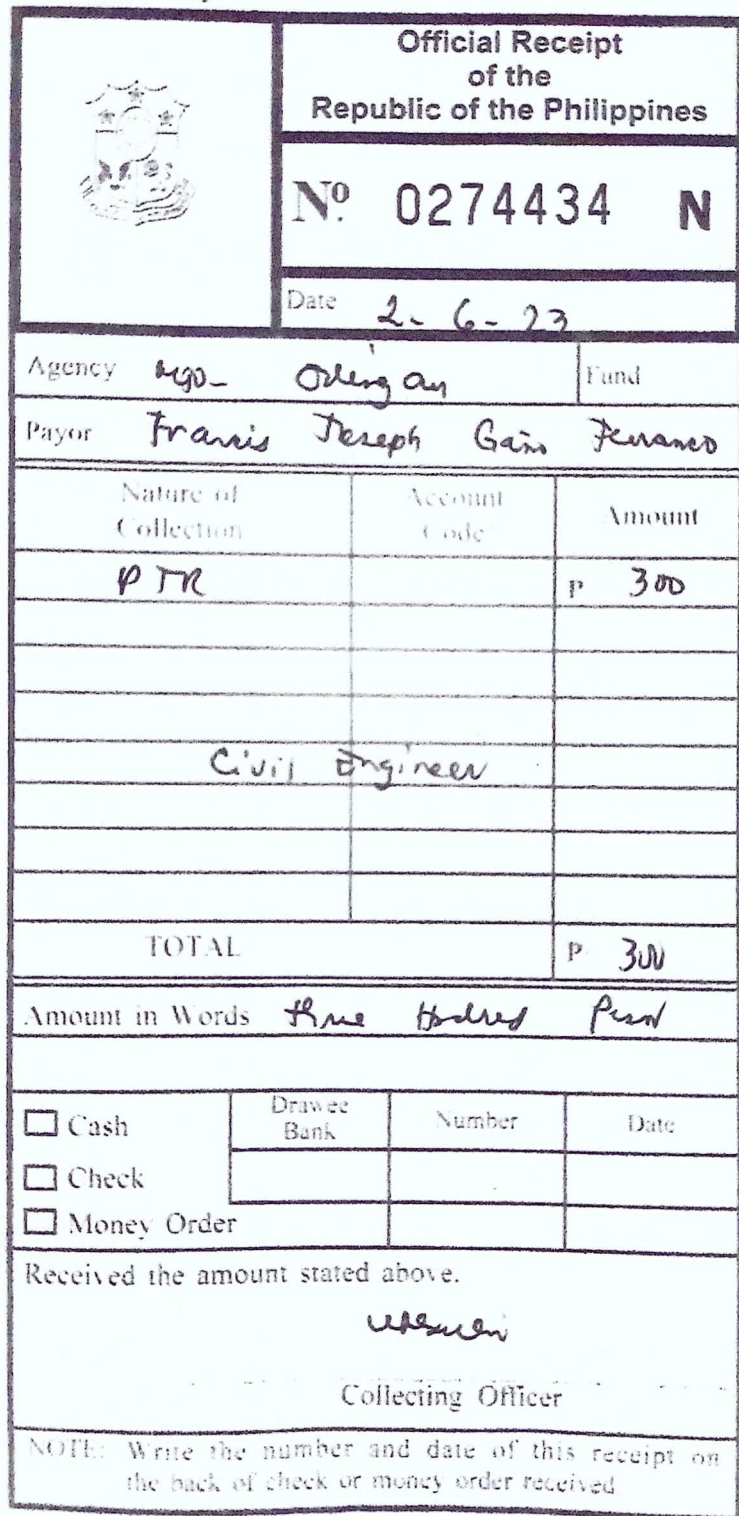 Official Receipt
of the
Republic of the Philippines
Nº. 0274434 N
Date 2-6-23
Agency Mgo- Odiongan Fund
Payor Francis Joseph
Nature of Collection Account Code Amount
PTR P 300
Civil Engineer
TOTAL P 300
Amount in Words three Hundred
Cash Drawee Bank Number Date
Check
Money Order
Received the amount stated above.
Collecting Officer
NOTE: Write the number and date of this receipt on
the back of check or money order received